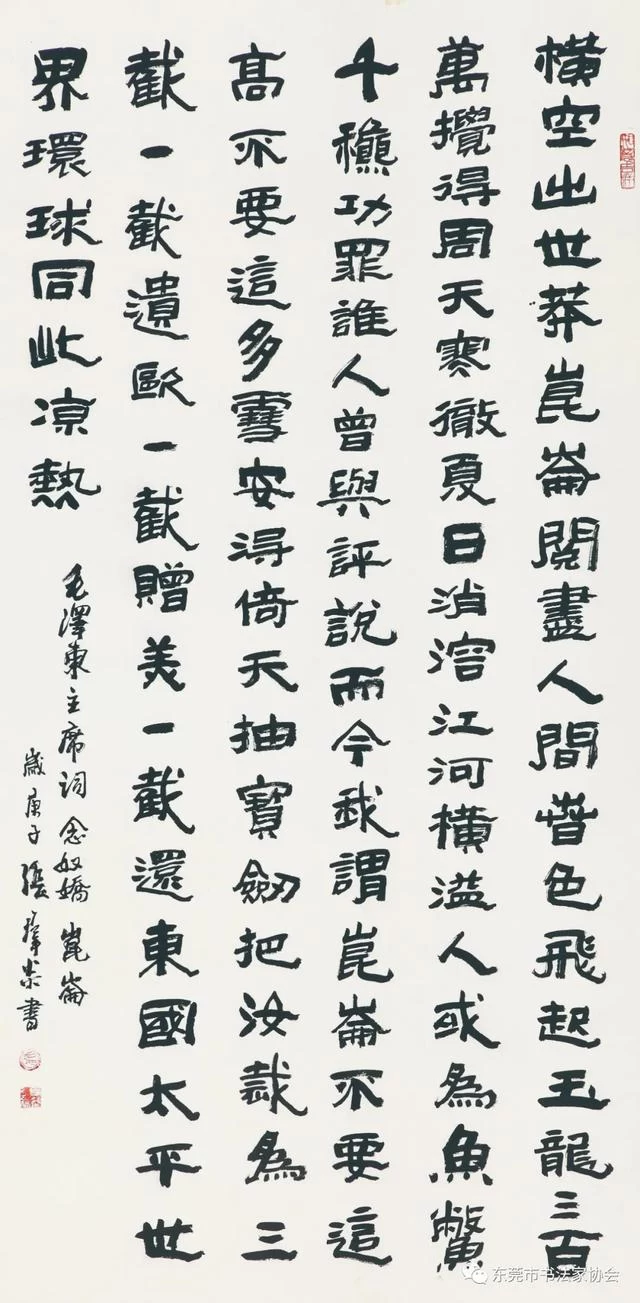 橫空出世莽崑崙閱盡人間旾色飛起玉龍三百
萬攪得周天寒徹夏日消溶江河橫溢人或為魚鱉
千穐功罪誰人曾與評說而今我謂崑崙不要這
高不要這多雪安得倚天抽寶劍把汝裁為三
截一截遺歐一截贈美一截還東國太平世
界環球同此涼熱
毛澤東主席詞念奴嬌崑崙
歲庚子張書
东莞市书法家协会